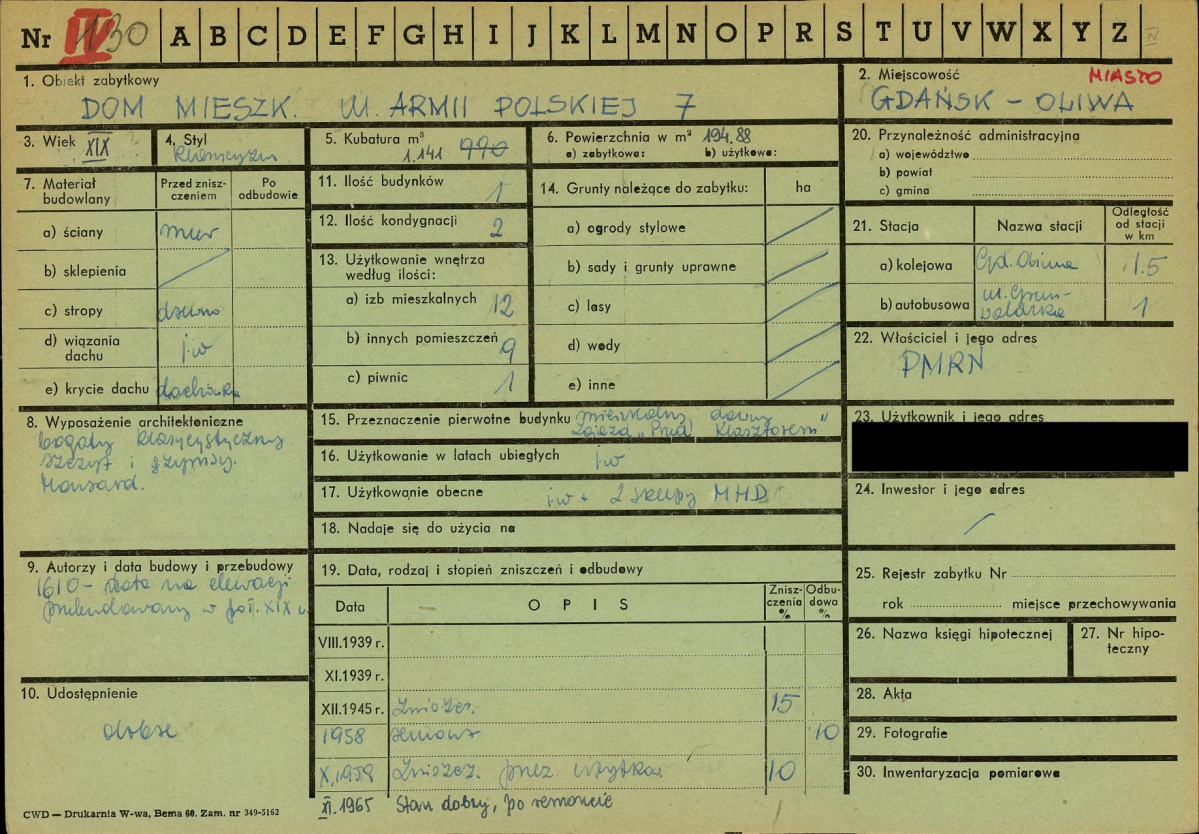 Nr IV 130 A B C D E F G H I J K L M N O P R S T U V W X Y Z IV
1. Obiekt zabytkowy
DOM MIESZK. Ul. ARMII POLSKIEJ 7
2. Miejscowość MIASTO
GDAŃSK – OLIWA
3. Wiek XIX
4. Styl
Klasycyzm
5. Kubatura m³
1.141 990
6. Powierzchnia w m² 194.88
a) zabytkowa: b) użytkowa:
7. Materiał budowlany
Przed zniszczeniem
Po odbudowie
a) ściany mur
b) sklepienia
c) stropy drewno
d) wiązania dachu j.w
e) krycie dachu dachówka
8. Wyposażenie architektoniczne
bogaty klasycystyczny
szczyt i gzymsy.
Mansard.
9. Autorzy i data budowy i przebudowy
1610 – data na elewacji
przebudowany w poł. XIX w.
10. Udostępnienie
dobre
CWD — Drukarnia W-wa, Bema 60. Zam. nr 349-5162
11. Ilość budynków 1
12. Ilość kondygnacji 2
13. Użytkowanie wnętrza
według ilości:
a) izb mieszkalnych 12
b) innych pomieszczeń 9
c) piwnic 1
14. Grunty należące do zabytku: ha
a) ogrody stylowe
b) sady i grunty uprawne
c) lasy
d) wody
e) inne
15. Przeznaczenie pierwotne budynku mieszkalny, dawny
zajazd „Pod Klasztorem"
16. Użytkowanie w latach ubiegłych j.w
17. Użytkowanie obecne j.w + 2 sklepy MHD
18. Nadaje się do użycia na
19. Data, rodzaj i stopień zniszczeń i odbudowy
Data
OPIS
Zniszczenia %
Odbudowa %
VIII.1939 r.
XI.1939 r.
XII.1945 r. Zniszcz. 15
1958 remont 10
X.1959 Zniszcz. przez użytkow. 10
XI.1965 Stan dobry, po remoncie
20. Przynależność administracyjna
a) województwo
b) powiat
c) gmina
21. Stacja
Nazwa stacji
Odległość od stacji w km
a) kolejowa Gd. Oliwa 1.5
b) autobusowa ul. Grunwaldzka 1
22. Właściciel i jego adres
PMRN
23. Użytkownik i jego adres
24. Inwestor i jego adres
25. Rejestr zabytku Nr
rok miejsce przechowywania
26. Nazwa księgi hipotecznej
27. Nr hipoteczny
28. Akta
29. Fotografie
30. Inwentaryzacja pomiarowa